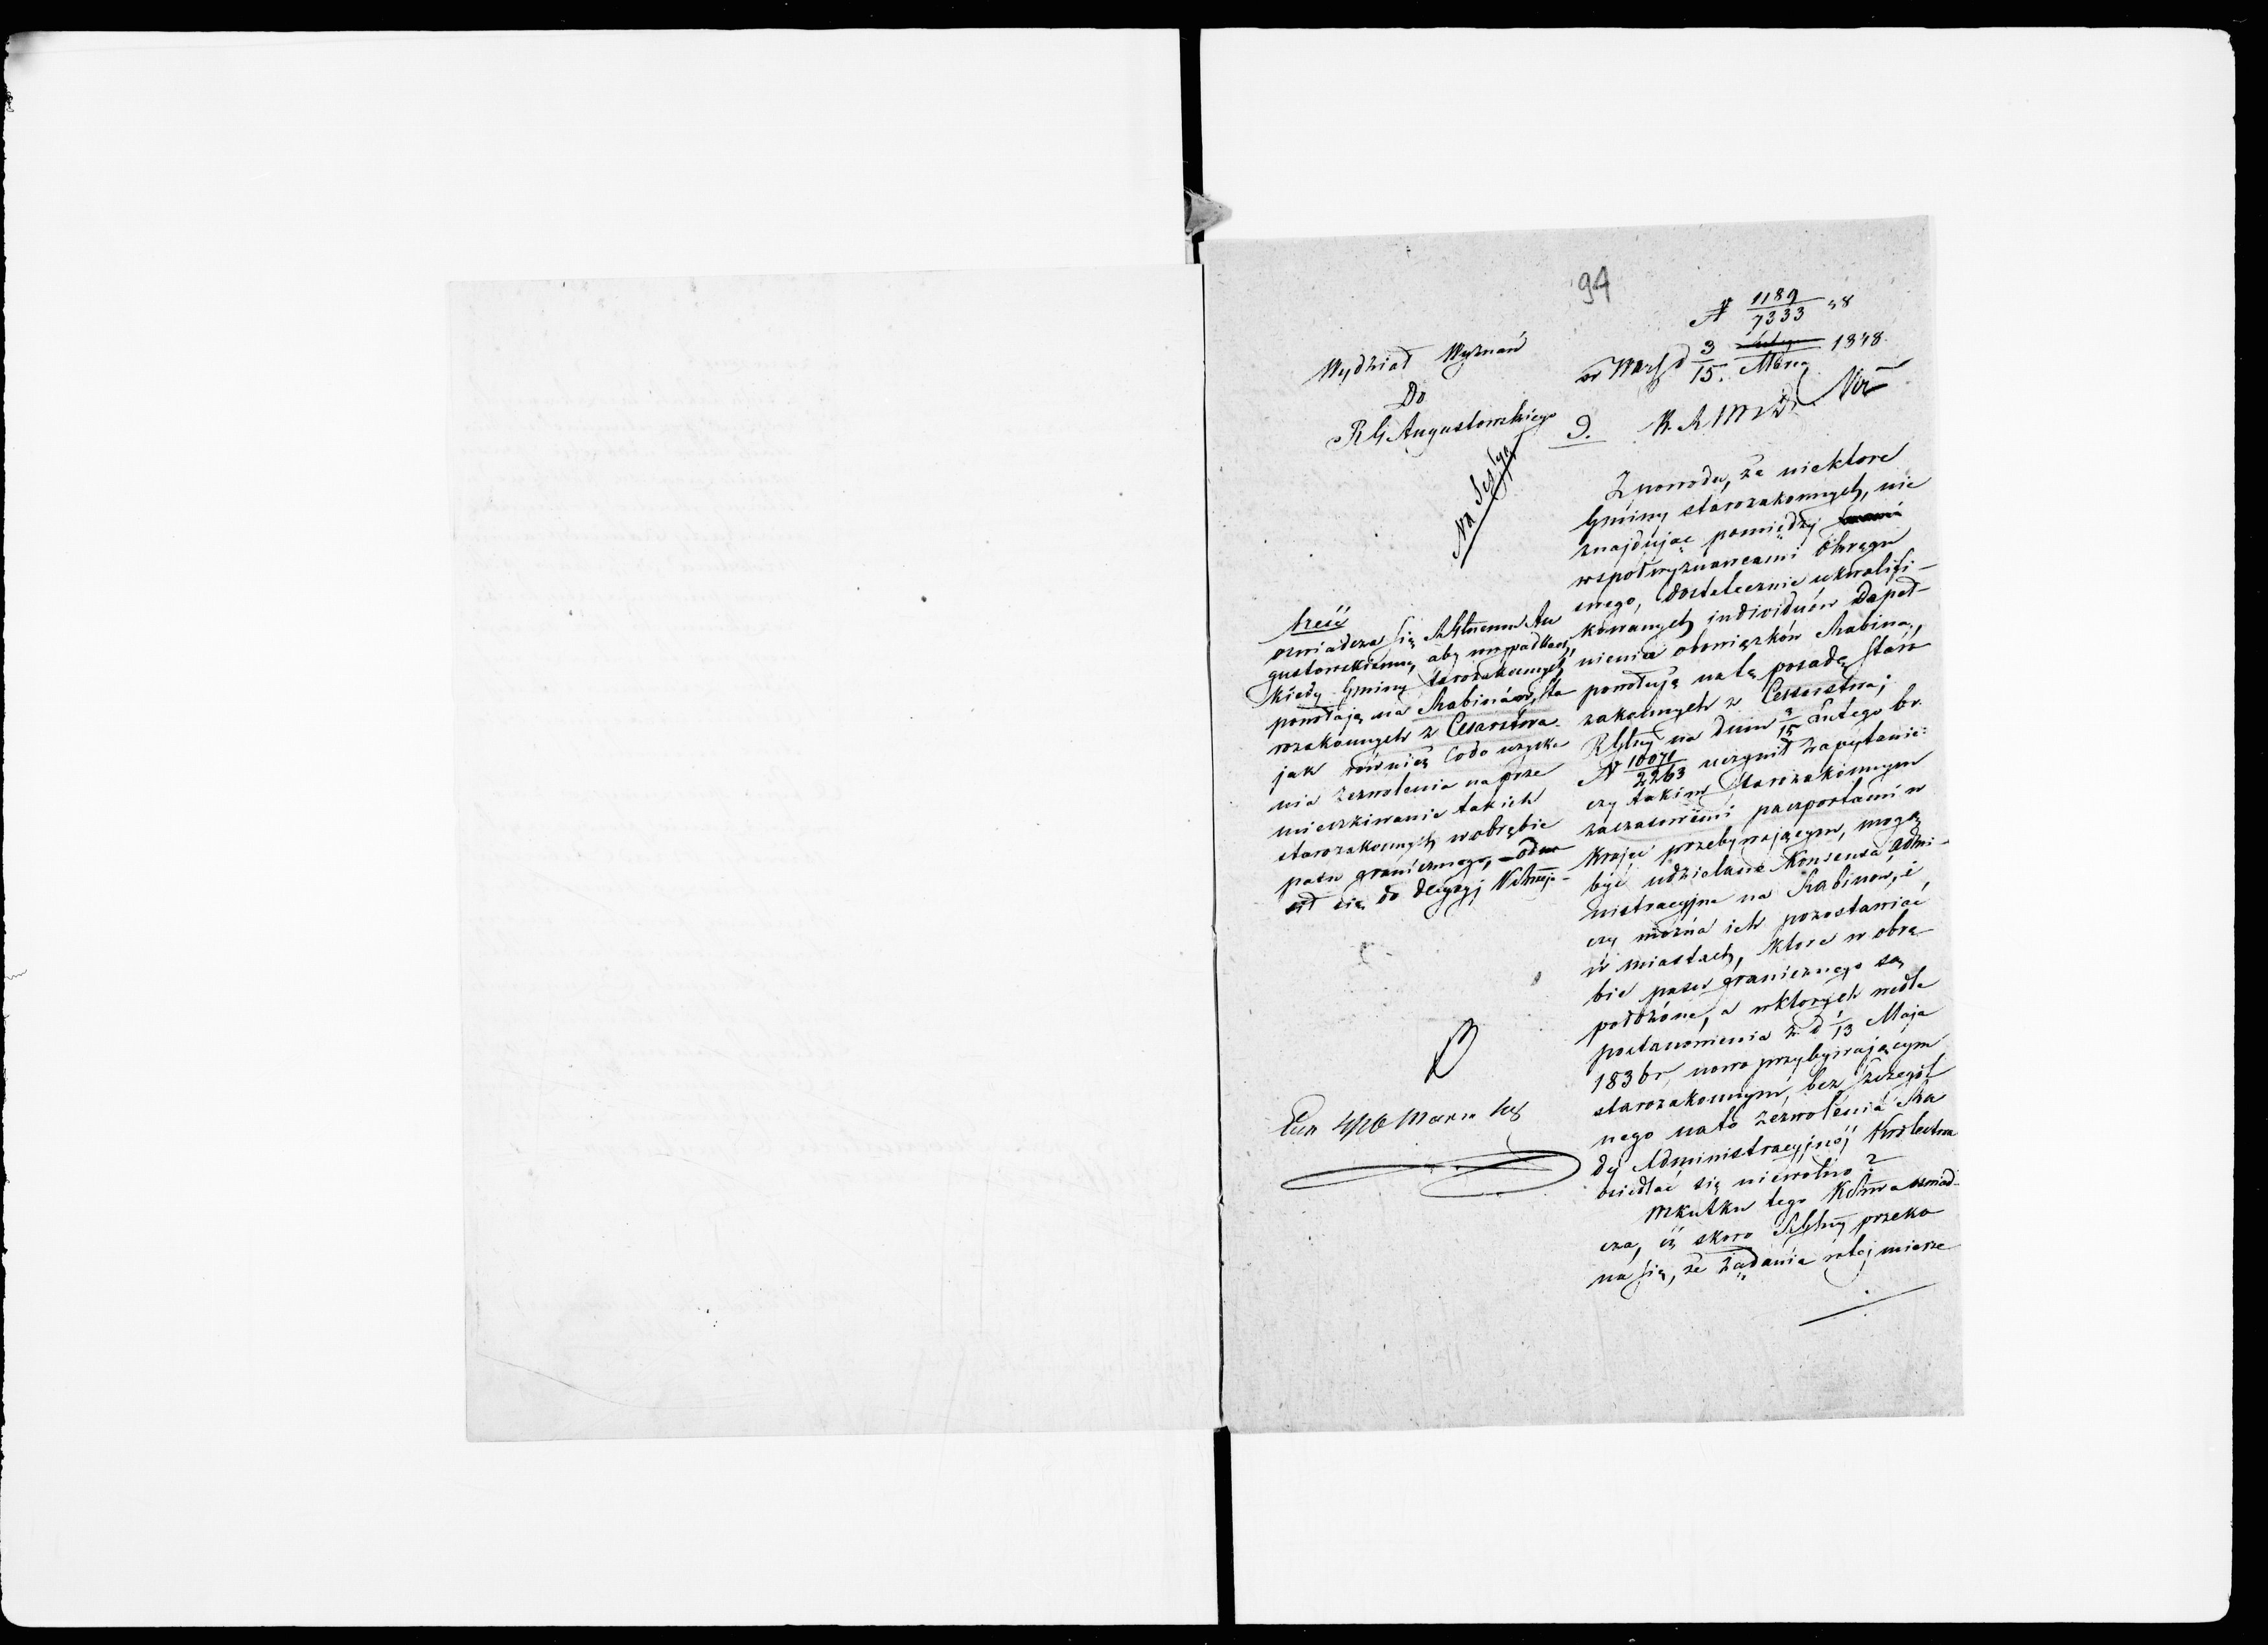 94
N 1189/7333 48
Wydział Wyznań
w Warsz d 3/15. Marca 1848.
Do
RG Augustowskiego
Na Sessyą
9. K. R. S. W. i D.
Z powodu, że niektore
Gminy starozakonnych, nie
znajdując pomiędzy
wspołwyznawcami Okręgu
swego, dostatecznie ukwalifi-
kowanych individuów do peł-
nienia obowiązków Rabina,
powołują na tę posadę Staro
zakonnych z Cesarstwa;
RGlny na dniu 3/15 Lutego br.
N 10071/2263 uczynił zapytanie:
czy takim Starozakonnym
za czasowemi paszportami w
Kraju przebywającym, mogą
być udzielane Konsensa admi-
nistracyjne na Rabinow, i
czy można ich pozostawiać
w miastach, ktore w obrę-
bie pasu granicznego są
położone, a w ktorych wedle
postanowienia z d 1/13 Maja
1836 r, nowo przybywającym
starozakonnym, bez szczegól
nego na to zezwolenia Ra
dy Administracyjnéj Krolestwa
osiedlać się niewolno?
W skutku tego KRząwa oświad-
cza, iż skoro RGlny przeko
na się, że żądania w tej mierze
Treść
oświadcza się RGlnemu Au
gustowskiemu, aby w wypadkach,
kiedy Gminy starozakonnych
powołają na Rabinów, Sta
rozakonnych z Cesarstwa
jak również co do uzyska
nia zezwolenia na prze
mieszkiwanie takich
starozakonnych w obrębie
pasu granicznego, odno
sił się do decyzyj
Exp 4/16 Marca 48